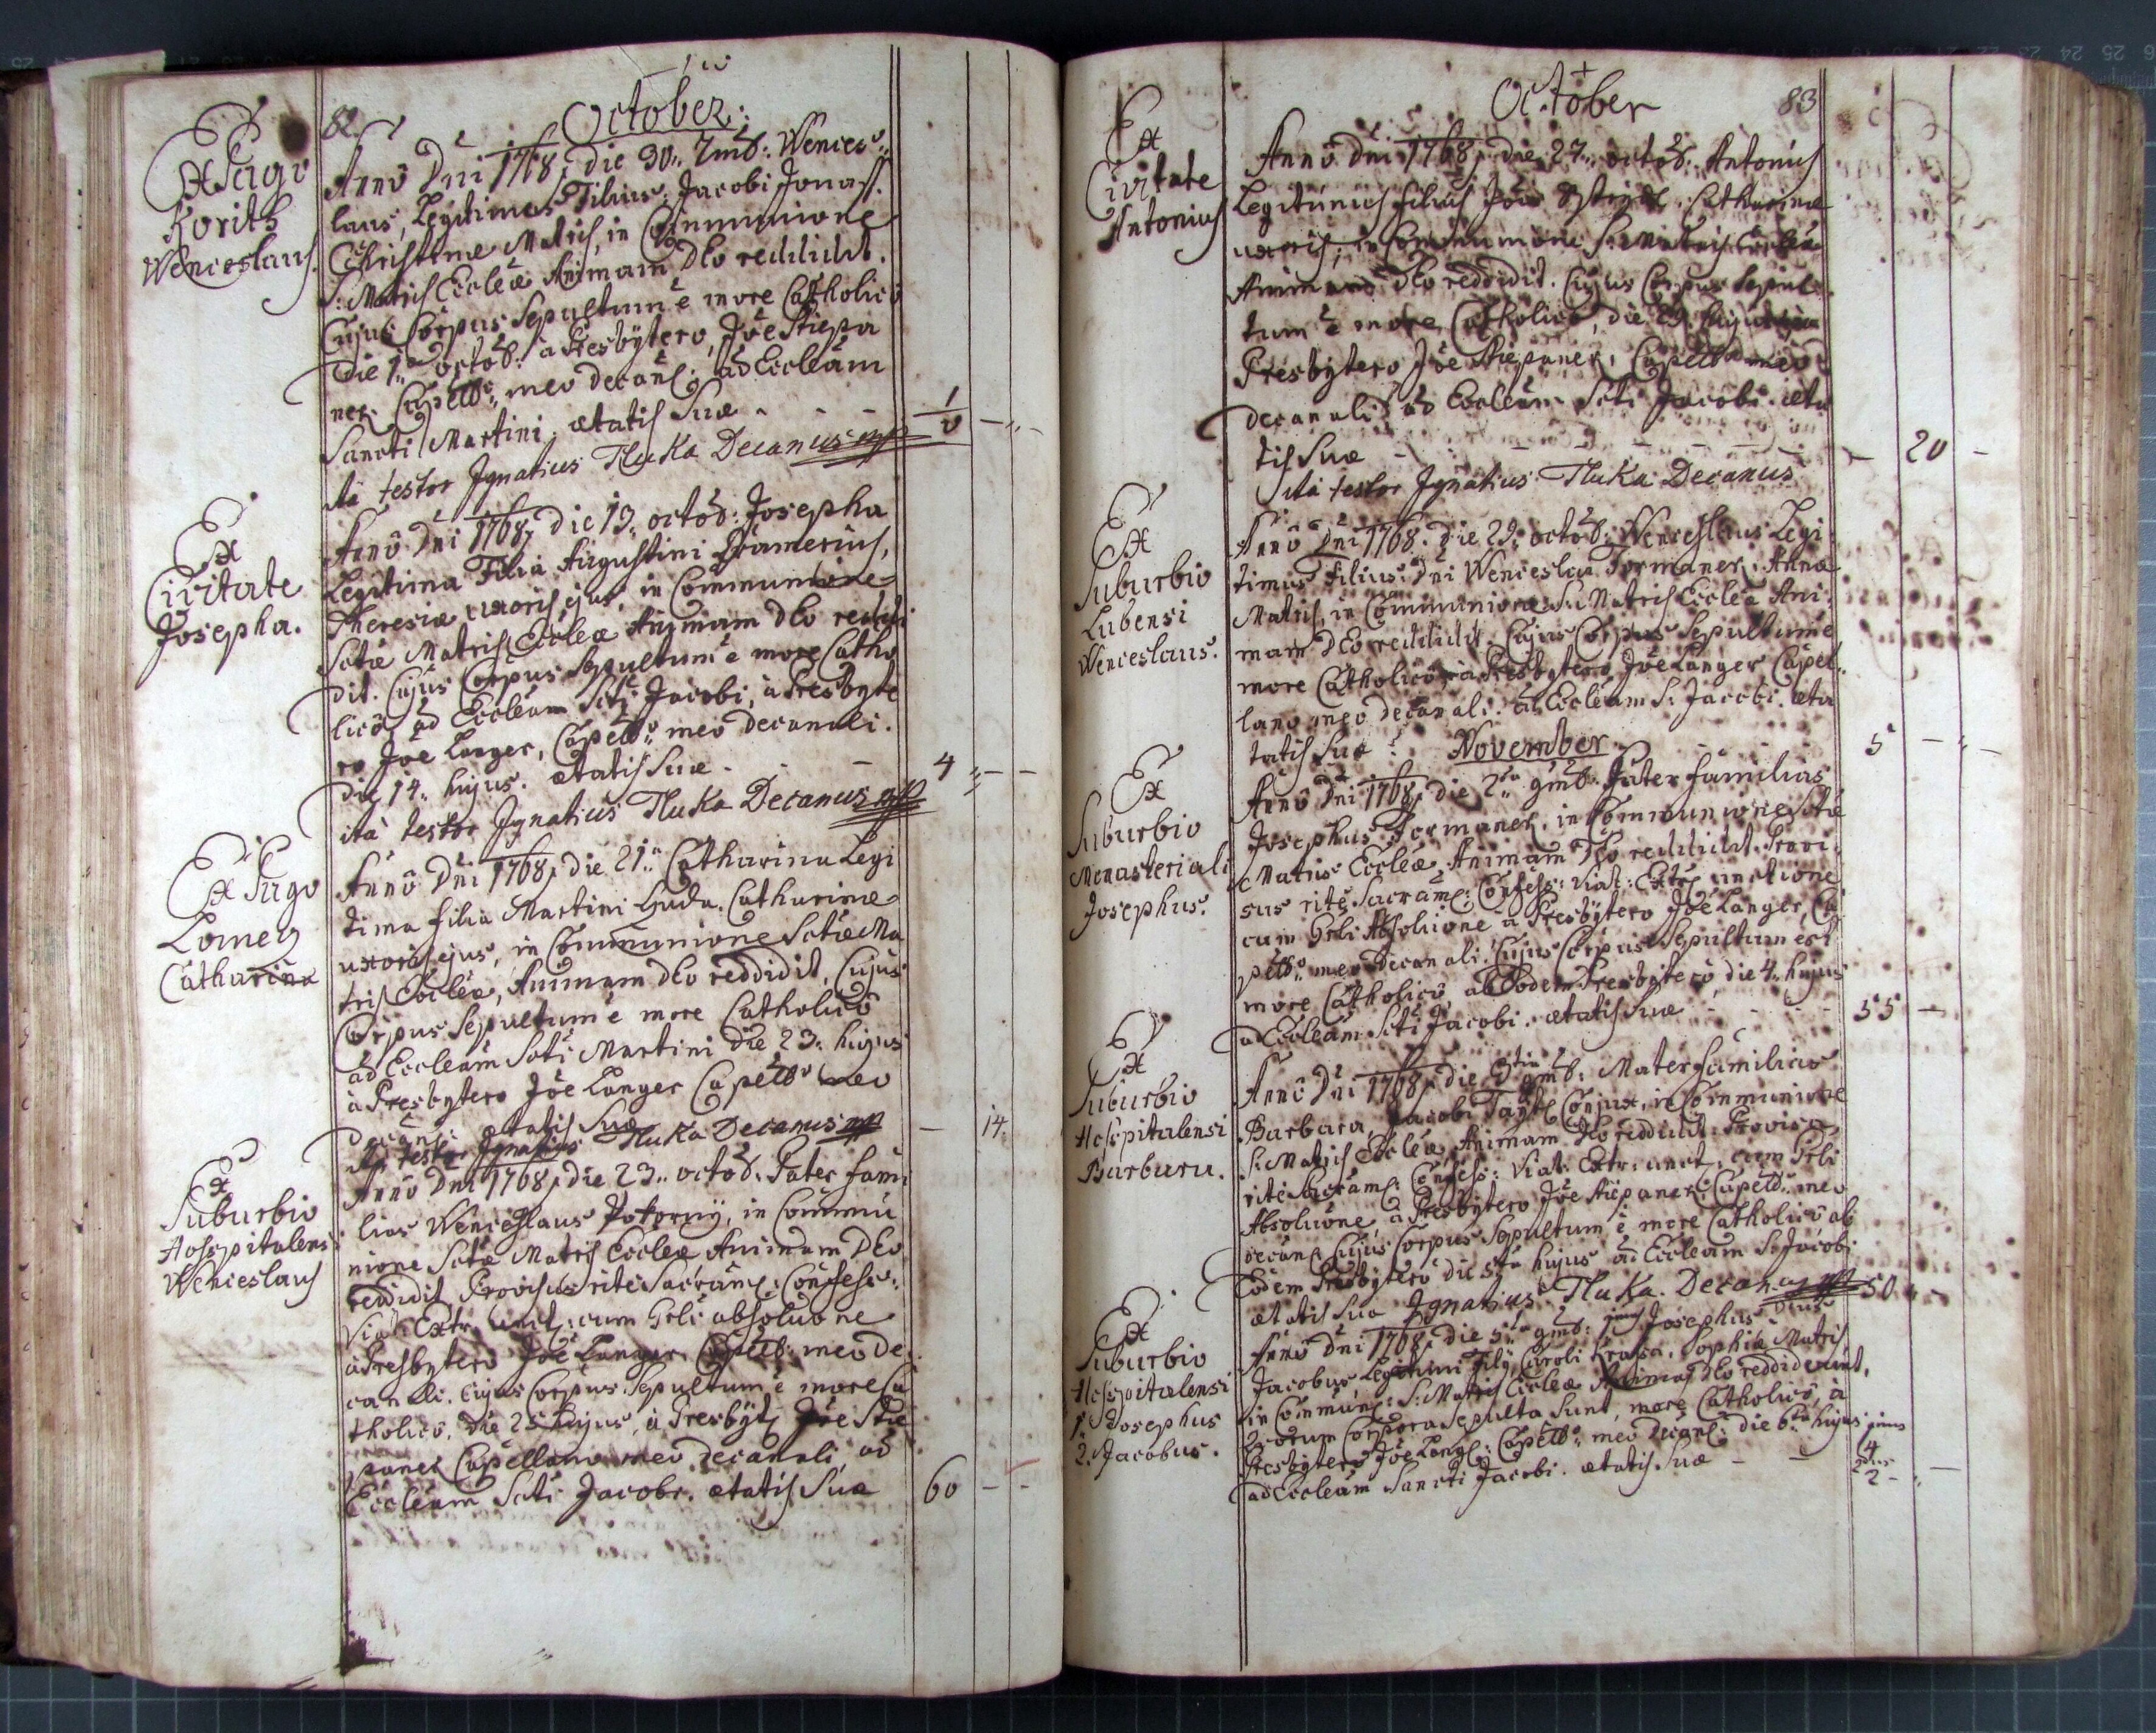 82.
October:
Ex Pago
Koritz
Wenceslaus.
Anno Dni 1768, die 30.. 7mb: Wences
laus, Legitimus Filius Jacobi Jonass.
Christinae Matris, in Communione
S: Matris Eccleae Animam Deo reddidit.
Cujus Corpus Sepultum ē more Catholico
die 1ma octob: à Presbÿtero Joē Stiepa
nek Capello meo Decanl: ad Eccleam
Sancti Martini. ætatis Suæ - - -
1/2
ita testor Ignatius Tluka Decanus mp
Ex
Civitate
Josepha.
Anno Dni 1768, die 13. octob: Josepha
Legitima Filia Augustini Kramerius,
Theresiæ uxoris ejus, in Communione
Sctæ Matris Eccleæ Animam Deo reddi
dit. Cujus Corpus Sepultum ē more Catho
lico, ad Eccleam Scti Jacobi, à Presbyte
ro Joe Langer, Capello meo Decanali.
die 14.. hujus. ætatis Suæ - - -
4
ita testor Ignatius Tluka Decanus mp
Ex Pago
Lomeg
Catharina
Anno Dni 1768, die 21.. Catharina Legi
tima filia Martini Huda. Catharinæ
uxoris ejus, in Communione Sctæ Ma
tris Eccleæ, Animam Deo reddidit, Cujus
Corpus Sepultum ē more Catholico
ad Eccleam Scti Martini die 23.. hujus
à Presbytero Joe Langer Capello meo
Decanl: ætatis Suæ
14.
ita testor Ignatius Tluka Decanus mp
Ex
Suburbio
Hospitalensi
Wenceslaus
Anno Dni 1768, die 23.. octob: Pater fami
lias Wenceslaus Pokorný, in Commu
nione Sctæ Matris Eccleæ Animam Deo
reddidit Provisus rite Sacraml: Confess:
Viat: Extr: unct: cum Grli absolutione
à Presbytero Joe Langer Capell: meo De
canali. Cujus Corpus Sepultum ē more Ca
tholico, die 25 hujus, à Presbyt: Joe Stie
panek Capellano meo Decanali, ad
Eccleam Scti Jacobi. ætatis Suæ
60
October
83
Ex
Civitate
Antonius
Anno Dni 1768, die 27.. octob: Antonius
Legitimus filius Jois Catharinæ
uxoris, in Communione S: Matris Eccleæ
Animam Deo reddidit. Cujus Corpus Sepul
tum ē more Catholico, die 29. hujus
Presbytero Joe Stiepanek, Capello meo
decanali ad Eccleam Scti Jacobi. æta
tis Suæ - - -
20
ita testor Ignatius Tluka Decanus
Ex
Suburbio
Lubensi
Wenceslaus.
Anno Dni 1768. die 29: octob: Wenceslaus Legi
timus filius Dni Wenceslai Formanek. Anna
Matris, in Communione S: Matris Eccleæ Ani
mam Deo reddidit. Cujus Corpus Sepultum ē
more Catholico à Presbytero Joe Langer Capel
lano meo decanali. ad Eccleam S: Jacobi. æta
tatis Suæ:
5
November
Ex
Suburbio
Monasteriali
Josephus.
Anno Dni 1768, die 2da 9mb. Pater familias
Josephus Formanek, in Communione Sctæ
Matris Eccleæ Animam Deo reddidit. Provi
sus rite Sacraml: Confess: Viat: Extr: unctione
cum Grli Absolutione à Presbytero Joe Langer, Ca
pello meo Decanali. Cujus Corpus Sepultum est
more Catholico, ab Eodem Presbitero, die 4.. hujus
ad Eccleam Scti Jacobi. ætatis Suæ - - -
55
Ex
Suburbio
Hospitalensi
Barbara.
Anno Dni 1768, die 3tia 9mb: Mater familias
Barbara, Jacobi Conjux, in Communione
S: Matris Eccleæ, Animam Deo reddidit. Provisa
rite Sacraml: Confess: Viat: Extr: unct. cum Grli
Absolutione à Presbytero Joe Stiepanek Capello meo
decanl: Cujus Corpus Sepultum ē more Catholico ab
Eodem Presbytero die 5ta hujus ad Eccleam S: Jacobi
ætatis Sua Ignatius Tluka. Decanus mp
50
Ex
Suburbio
Hospitalensi
1. Josephus
2. Jacobus.
Anno Dni 1768, die 5ta 9mb: 1mus Josephus 2dus
Jacobus, Legitimi Filÿ Caroli Krasa. Sophiæ Matris
in Commun: S: Matris Eccleæ Animas Deo reddiderunt,
Quorum Corpora Sepulta Sunt, more Catholico, à
Presbytero Joe Langr: Capello meo Decanl: die 6ta hujus
ad Eccleam Sancti Jacobi. ætatis Suæ - - -
1mus
4
2dus
2